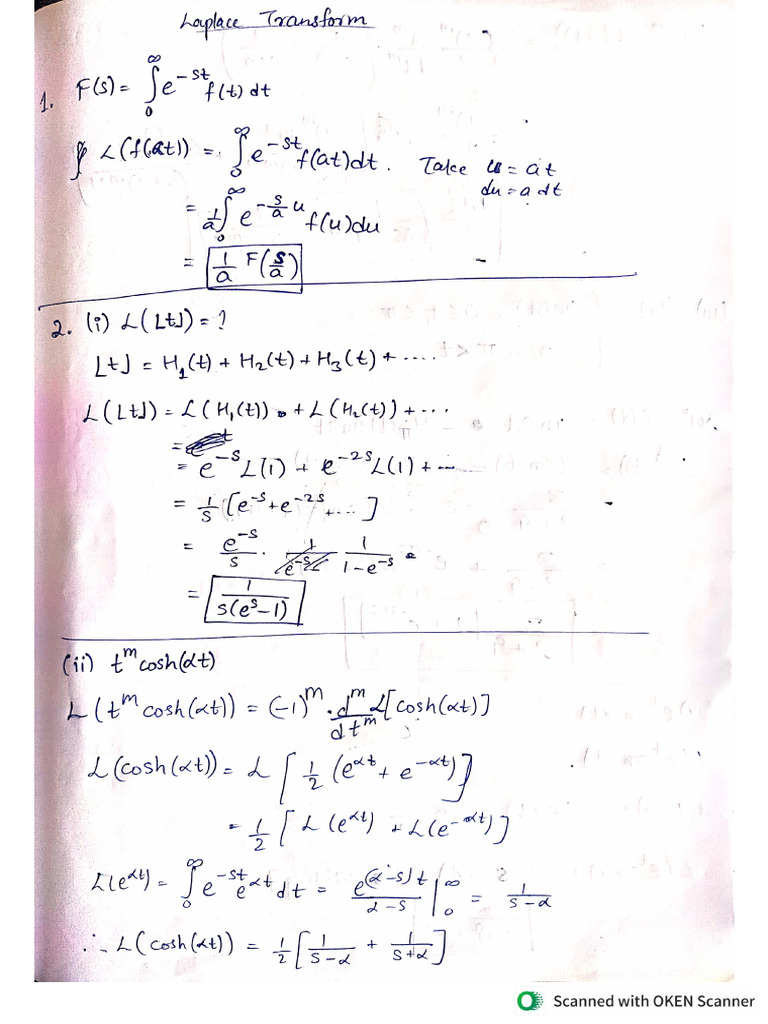 Laplace Transform
1. F(s) = ∫₀^∞ e^{-st} f(t) dt
L(f(at)) = ∫₀^∞ e^{-st} f(at) dt. Take u = at
du = a dt
= 1/a ∫₀^∞ e^{-s/a u} f(u) du
= 1/a F(s/a)
2. (i) L(⌊t⌋) = ?
⌊t⌋ = H₁(t) + H₂(t) + H₃(t) + ....
L(⌊t⌋) = L(H₁(t)) + L(H₂(t)) + ...
=
= e^{-s} L(1) + e^{-2s} L(1) + ...
= 1/s [e^{-s} + e^{-2s} + ...]
= e^{-s}/s · 1/(1-e^{-s})
= 1/(s(e^s-1))
(ii) t^m cosh(αt)
L(t^m cosh(αt)) = (-1)^m · d^m/dt^m L[cosh(αt)]
L(cosh(αt)) = L[1/2 (e^{αt} + e^{-αt})]
= 1/2 [L(e^{αt}) + L(e^{-αt})]
L(e^{αt}) = ∫₀^∞ e^{-st} e^{αt} dt = e^{(α-s)t}/(α-s) |₀^∞ = 1/(s-α)
∴ L(cosh(αt)) = 1/2 [1/(s-α) + 1/(s+α)]
Scanned with OKEN Scanner